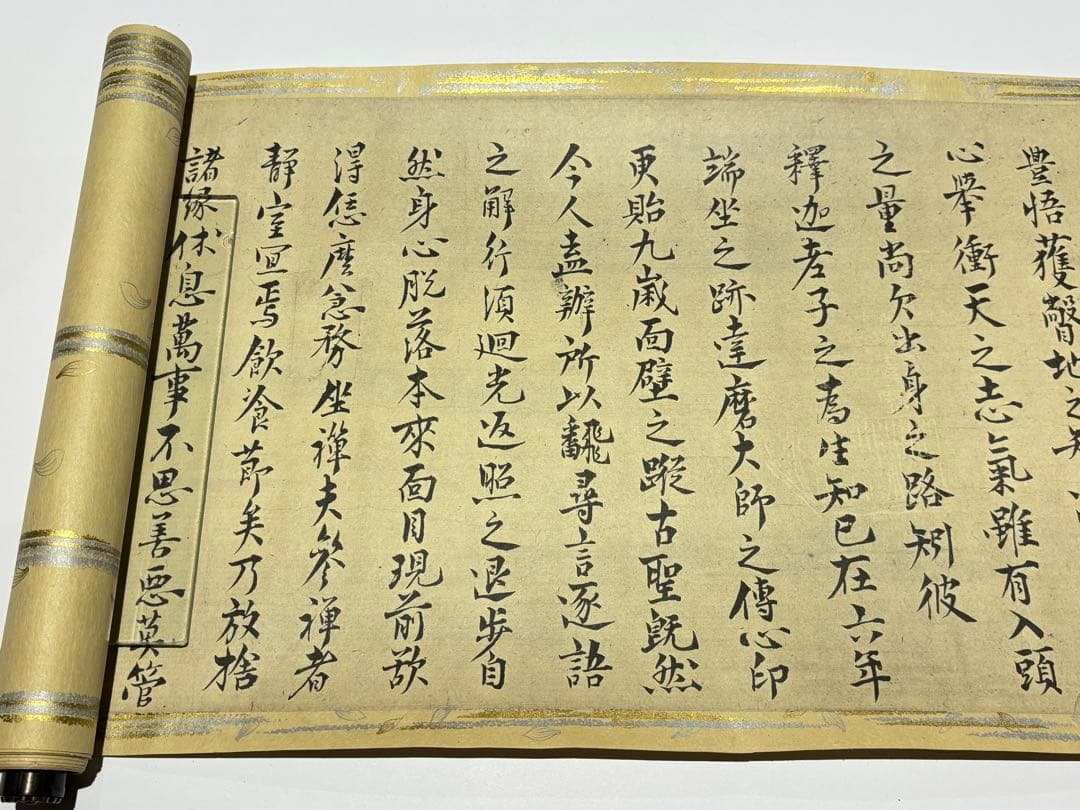 豊悟獲瞥地之
心擧衝天之志氣雖有入頭
之量尚欠出身之路矧彼
釋迦老子之爲生知已在六年
端坐之跡達磨大師之傳心印
更貽九歳面壁之蹤古聖既然
今人盍辦所以飜尋言逐語
之解行須迴光返照之退歩自
然身心脱落本來面目現前欲
得恁麼急務坐禪夫參禪者
靜室宜焉飲飡節矣乃放捨
諸縁休息萬事不思善惡莫管